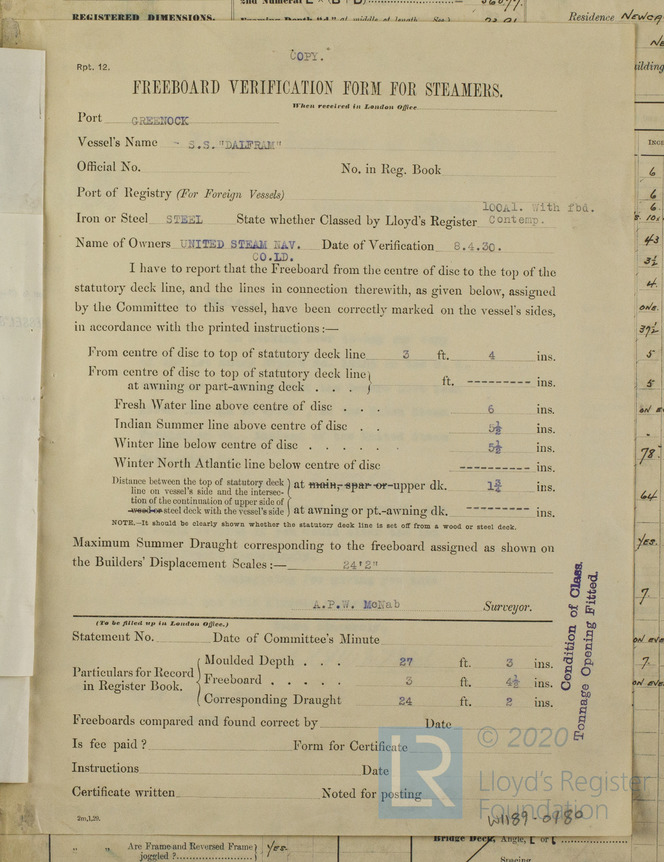 2nd Numeral L × (B + D)
REGISTERED DIMENSIONS.
Residence NEWCA
COPY.
Rpt. 12.
FREEBOARD VERIFICATION FORM FOR STEAMERS.
When received in London Office
Port GREENOCK
Vessel's Name - S.S."DALFRAM"
Official No. No. in Reg. Book
Port of Registry (For Foreign Vessels)
100A1. With fbd.
Iron or Steel STEEL State whether Classed by Lloyd's Register Contemp.
Name of Owners UNITED STEAM NAV. Date of Verification 8.4.30.
CO.LD.
I have to report that the Freeboard from the centre of disc to the top of the
statutory deck line, and the lines in connection therewith, as given below, assigned
by the Committee to this vessel, have been correctly marked on the vessel's sides,
in accordance with the printed instructions :—
From centre of disc to top of statutory deck line 3 ft. 4 ins.
From centre of disc to top of statutory deck line
at awning or part-awning deck . . . ft. --------- ins.
Fresh Water line above centre of disc . . . 6 ins.
Indian Summer line above centre of disc . . 5½ ins.
Winter line below centre of disc . . . . . . 5½ ins.
Winter North Atlantic line below centre of disc --------- ins.
Distance between the top of statutory deck
line on vessel's side and the intersec-
tion of the continuation of upper side of
wood or steel deck with the vessel's side
at main, spar or upper dk. 1¾ ins.
at awning or pt.-awning dk. --------- ins.
NOTE.—It should be clearly shown whether the statutory deck line is set off from a wood or steel deck.
Maximum Summer Draught corresponding to the freeboard assigned as shown on
the Builders' Displacement Scales :— 24'2"
A.P.W. McNab Surveyor.
(To be filled up in London Office.)
Statement No. Date of Committee's Minute
Particulars for Record
in Register Book.
Moulded Depth . . . 27 ft. 3 ins.
Freeboard . . . . . 3 ft. 4½ ins.
Corresponding Draught 24 ft. 2 ins.
Condition of Class.
Tonnage Opening Fitted.
Freeboards compared and found correct by Date
Is fee paid ? Form for Certificate
Instructions Date
Certificate written Noted for posting
2m,1,29.
LR
© 2020
Lloyd's Register
Foundation
W1189-0180
" " Are Frame and Reversed Frame
joggled ? YES.
Bridge Deck, Angle, [ or [
Spacing